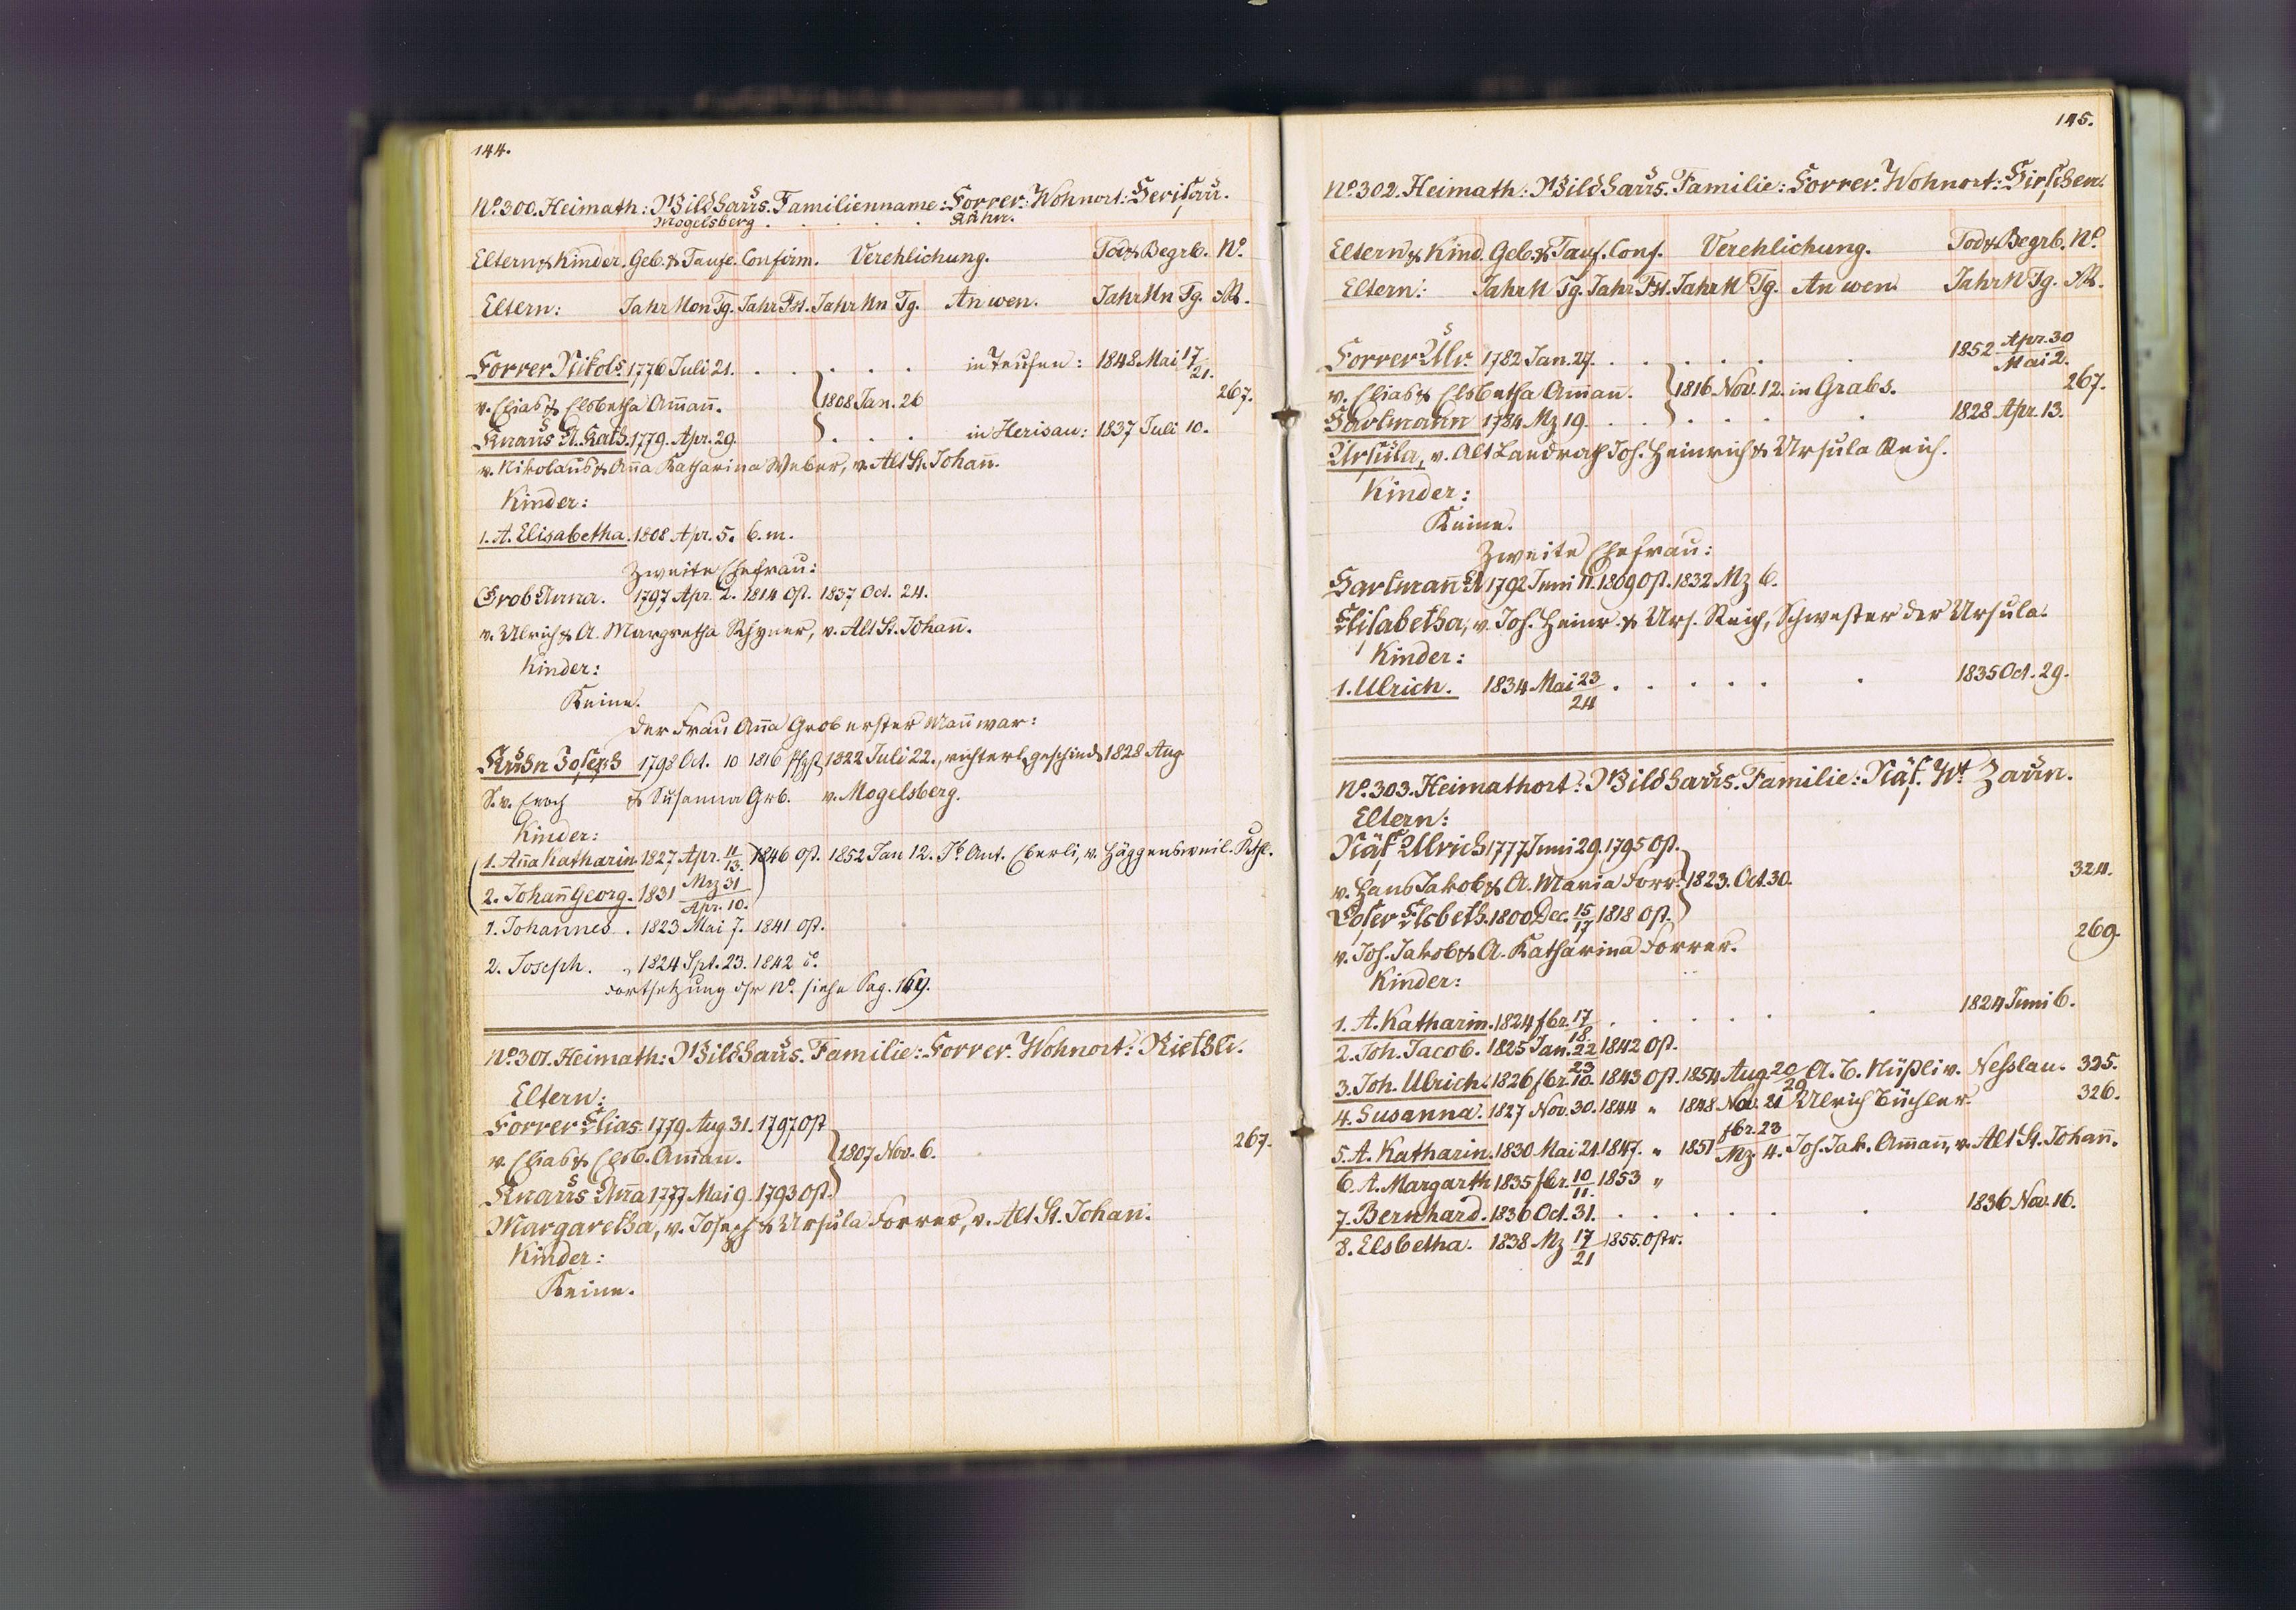 144.
No. 300. Heimath: Wildhaus. Familienname: Forrer. Wohnort: Herisau.
Mogelsberg . . . . . Kühn.
Eltern & Kinder. Geb. & Taufe. Confirm. Verehlichung. Tod & Begrb. No.
Eltern: Jahr Mon Tg. Jahr Fst. Jahr Mn Tg. An wen. Jahr Mn Tg.
Forrer Nikols. 1776 Juli 21. . . . . . in Teufen: 1848 Mai 17/21.
v. Elias & Elsbetha Am̄an̄. 1808 Jan. 26 267.
Knaus A. Kath. 1779. Apr. 29. . . . in Herisau: 1837 Juli 10.
v. Nikolaus & An̄a Katharina Weber, v. Alt St. Johan̄.
Kinder:
1. A. Elisabetha. 1808 Apr. 5. 6. m.
Zweite Ehefrau:
Grob Anna. 1797 Apr. 2. 1814 Ost. 1837 Oct. 24.
v. Ulrich & A. Margretha Rhyner, v. Alt St. Johan̄.
Kinder:
Keine.
Der Frau An̄a Grob erster Man̄ war:
Kühn Joseph 1798 Oct. 10 1816 Pfgst 1822 Juli 22., richterl. geschied. 1828 Aug
S. v. Enoch & Susanna Grb. v. Mogelsberg.
Kinder:
1. An̄a Katharin. 1827 Apr. 11/13. 1846 Ost. 1852 Jan 12. Jb. Ant. Eberli, v. Häggenswil. Kthl.
2. Johan̄ Georg. 1831 Mrz 31/Apr. 10.
1. Johannes . 1823 Mai 7. 1841 Ost.
2. Joseph. 1824 Spt. 23. 1842
Fortsetzung dsr No. siehe Pag. 169.
No. 301. Heimath: Wildhaus. Familie: Forrer. Wohnort: Riethli.
Eltern:
Forrer Elias. 1779 Aug 31. 1797 Ost
v. Elias & Elsb. Am̄an. 1807 Nov. 6. 267.
Knaus An̄a 1777 Mai 9. 1793 Ost.
Margaretha, v. Joseph & Ursula Forrer, v. Alt St. Johan̄.
Kinder:
Keine.
145.
No. 302. Heimath: Wildhaus. Familie: Forrer. Wohnort: Hirschen.
Eltern & Kind. Geb. & Tauf. Conf. Verehlichung. Tod & Begrb. No.
Eltern: Jahr M Tg. Jahr Fst. Jahr M Tg. An wen. Jahr M Tg.
Forrer Ulr. 1782 Jan. 27. . . . . . . 1852 Apr. 30/Mai 2.
v. Elias & Elsbetha Am̄an. 1816 Nov. 12. in Grabs. 267.
Hartmann 1784 Mz 19. . . . . . . 1828 Apr. 13.
Ursula, v. Alt Landrath Joh. Heinrich & Ursula Reich.
Kinder:
Keine.
Zweite Ehefrau:
Hartman̄ A 1792 Juni 11. 1809 Ost. 1832 Mz 6.
Elisabetha, v. Joh. Heinr. & Urs. Reich, Schwester der Ursula.
Kinder:
1. Ulrich. 1834 Mai 23/24 . . . . . . 1835 Oct. 29.
No. 303. Heimathort: Wildhaus. Familie: Näf. Wt Zaun.
Eltern:
Näf Ulrich 1777 Juni 29. 1795 Ost.
v. Hans Jakob & A. Maria Forr. 1823. Oct. 30. 324.
Loser Elsbeth. 1800 Dec. 15/17 1818 Ost.
v. Joh. Jakob & A. Katharina Forrer. 269.
Kinder:
1. A. Katharin. 1824 fbr. 17/18. . . . . . . 1824 Juni 6.
2. Joh. Jacob. 1825 Jan. 22/23 1842 Ost.
3. Joh. Ulrich. 1826 fbr. 10. 1843 Ost. 1854 Aug. 20/29 A. B. Nüßli v. Nesslau. 325.
4. Susanna. 1827 Nov. 30. 1844 " 1848 Nov. 21 Ulrich Büchler. 326.
5. A. Katharin. 1830 Mai 24. 1847. " 1851 fbr. 23/Mz. 4. Joh. Jak. Am̄an̄, v. Alt St. Johan̄.
6. A. Margarth 1835 fbr. 10/11. 1853 "
7. Bernhard. 1836 Oct. 31. . . . . . . 1836 Nov. 16.
8. Elsbetha. 1838 Mz 17/21 1855. Ostr.